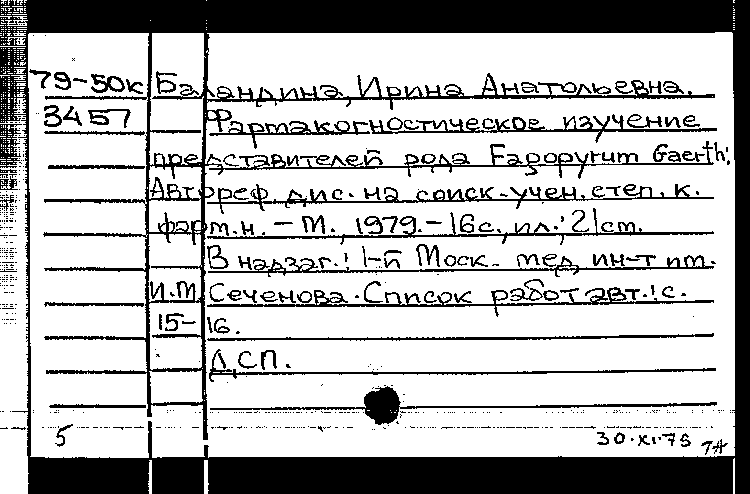 79-50к Баландина, Ирина Анатольевна.
3457 Фармакогностическое изучение
представителей рода Fagopyrum Gaerth:
Автореф. дис. на соиск. учен. степ. к.
фарм. н. - М., 1979. - 16 с., ил.; 21 см.
В надзаг.: 1-й Моск. мед. ин-т им.
И.М. Сеченова. Список работ авт.: с.
15-16.
ДСП.
5 30.XI.78